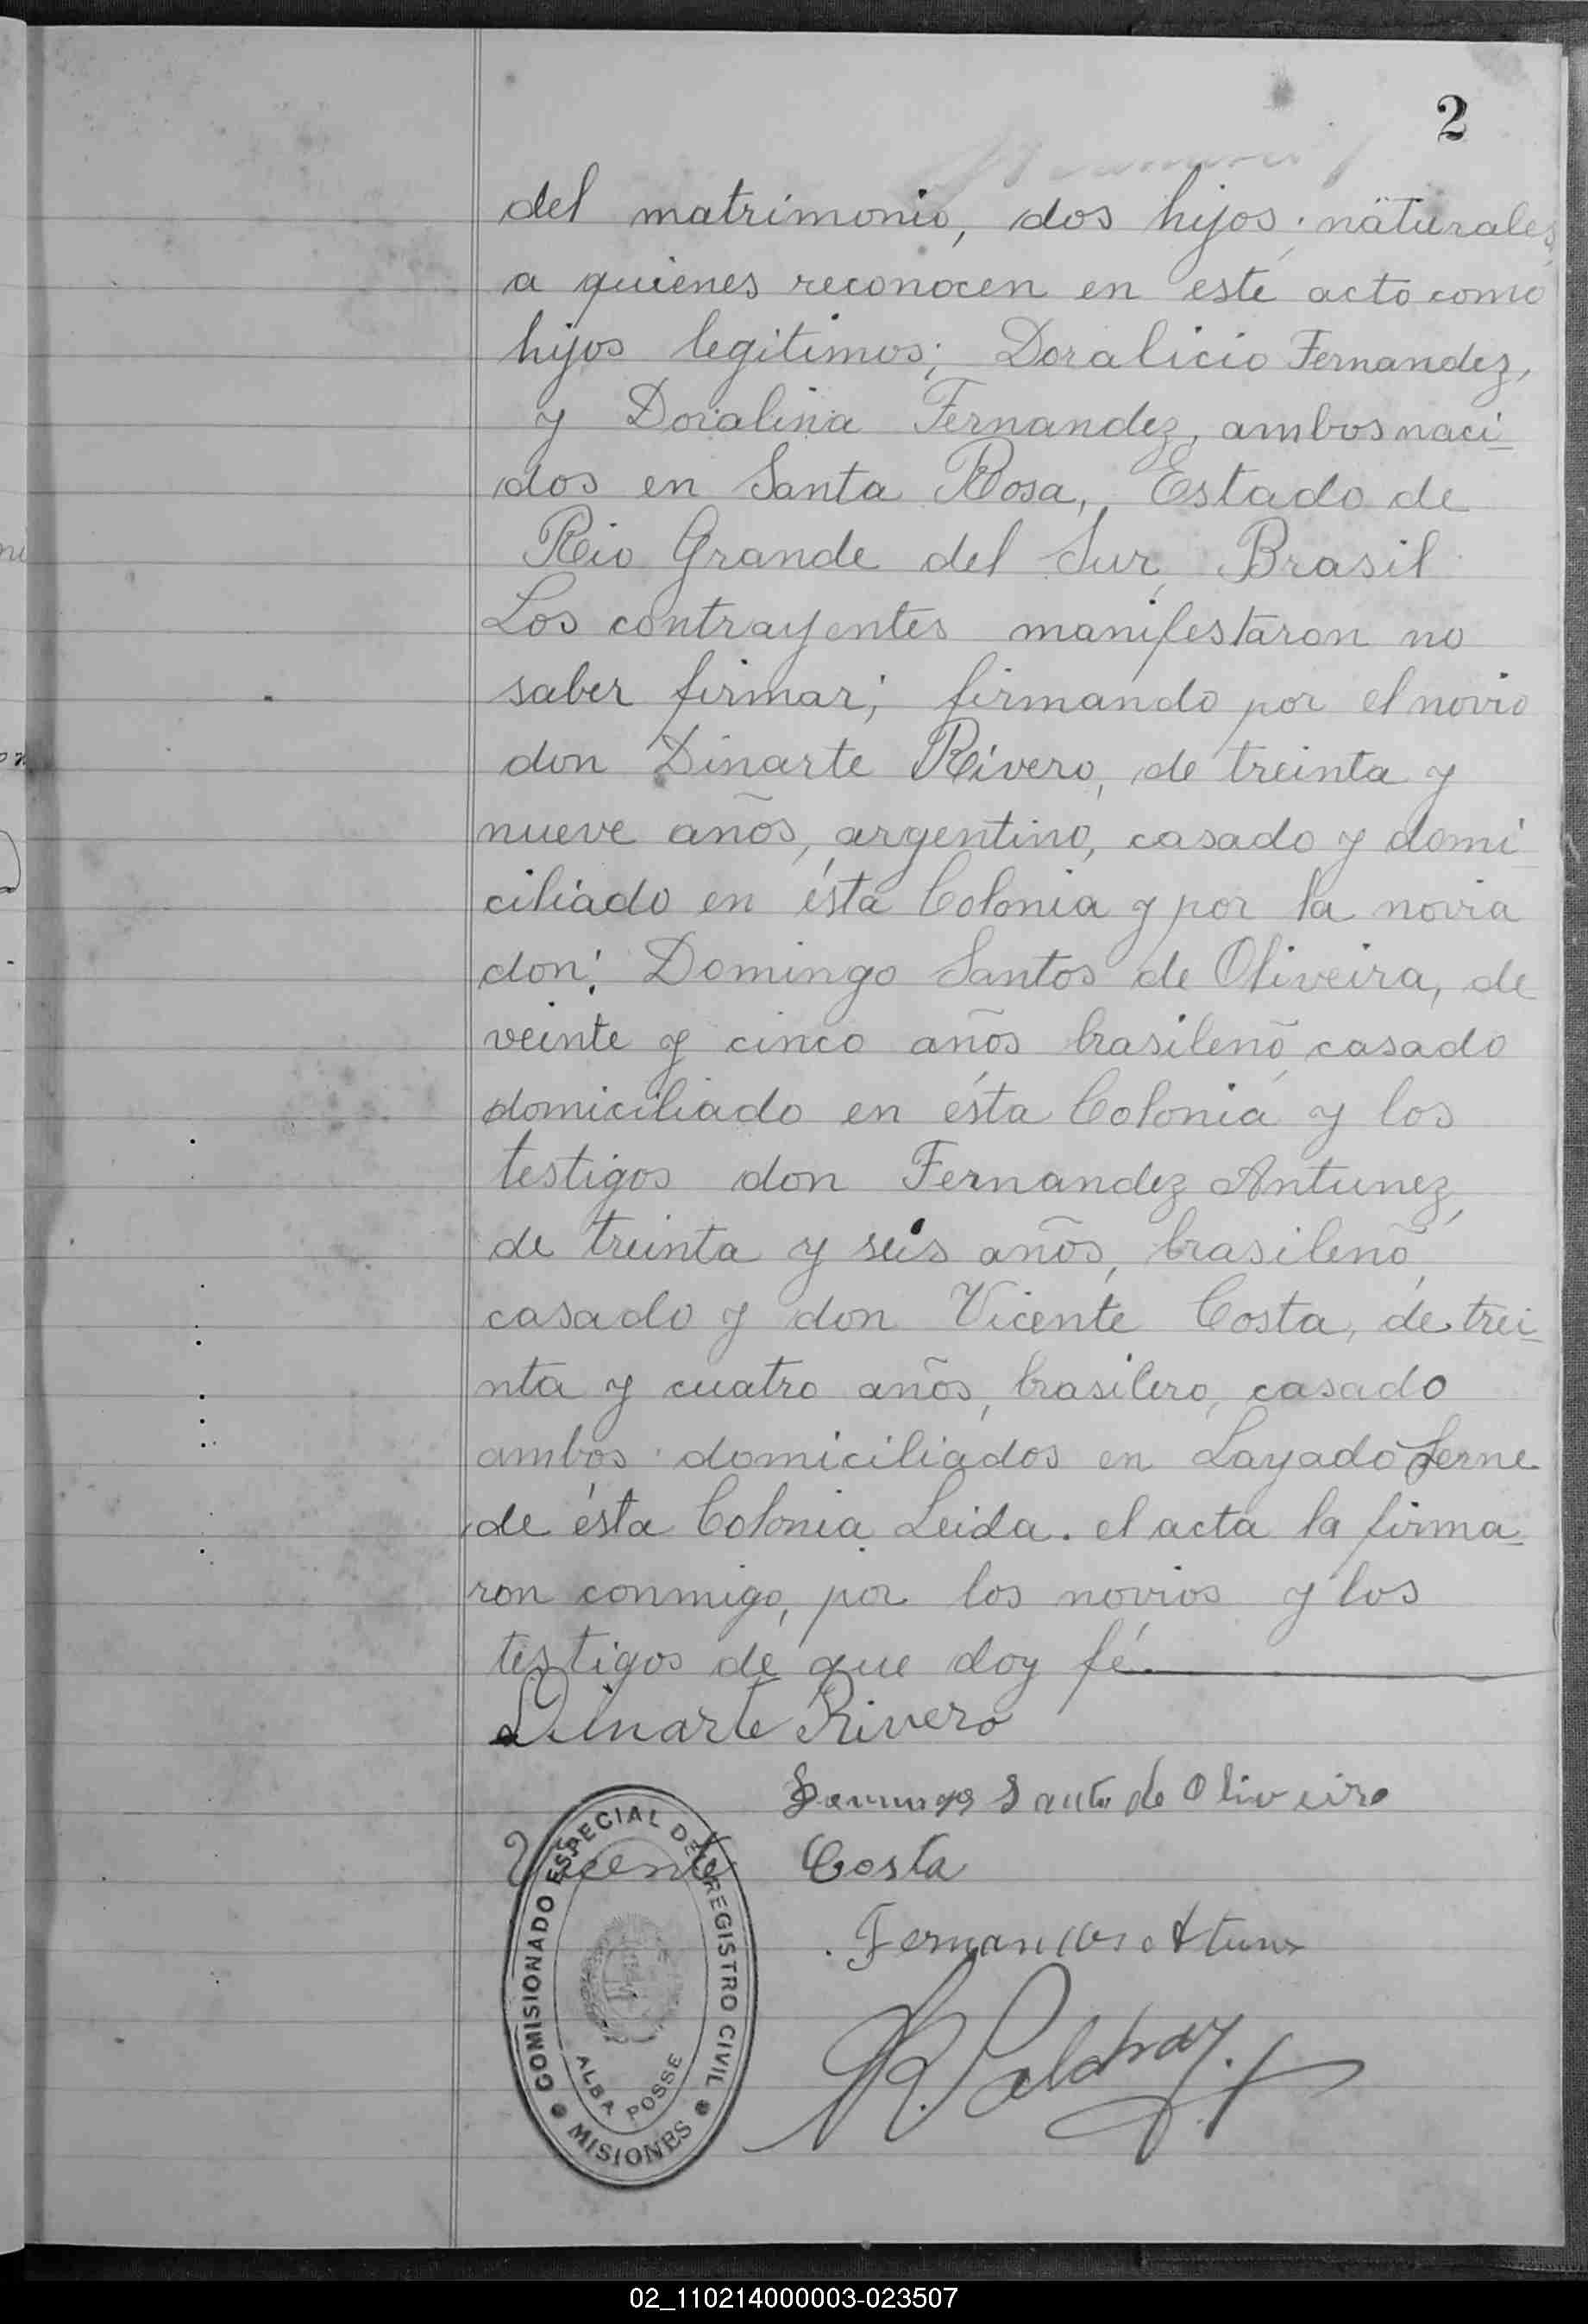 2
del matrimonio, dos hijos naturales,
a quienes reconocen en este acto como
hijos legitimos; Doralicio Fernandez,
y Doralina Fernandez, ambos naci-
dos en Santa Rosa, Estado de
Rio Grande del Sur, Brasil
Los contrayentes manifestaron no
saber firmar; firmando por el novio
don Dinarte Rivero, de treinta y
nueve años, argentino, casado y domi-
ciliado en ésta Colonia y por la novia
don: Domingo Santos de Oliveira, de
veinte y cinco años brasileño, casado
domiciliado en ésta Colonia y los
testigos don Fernandez Antunez,
de treinta y seis años, brasileño,
casado y don Vicente Costa, de trei-
nta y cuatro años, brasilero, casado
ambos domiciliados en Layado
de ésta Colonia. Leida el acta la firma-
ron conmigo, por los novios y los
testigos de que doy fé.
Dinarte Rivero
Domingos Santos de Oliveira
Vicente Costa
Fernandes
COMISIONADO ESPECIAL DEL REGISTRO CIVIL
ALBA POSSE
MISIONES
02_110214000003-023507